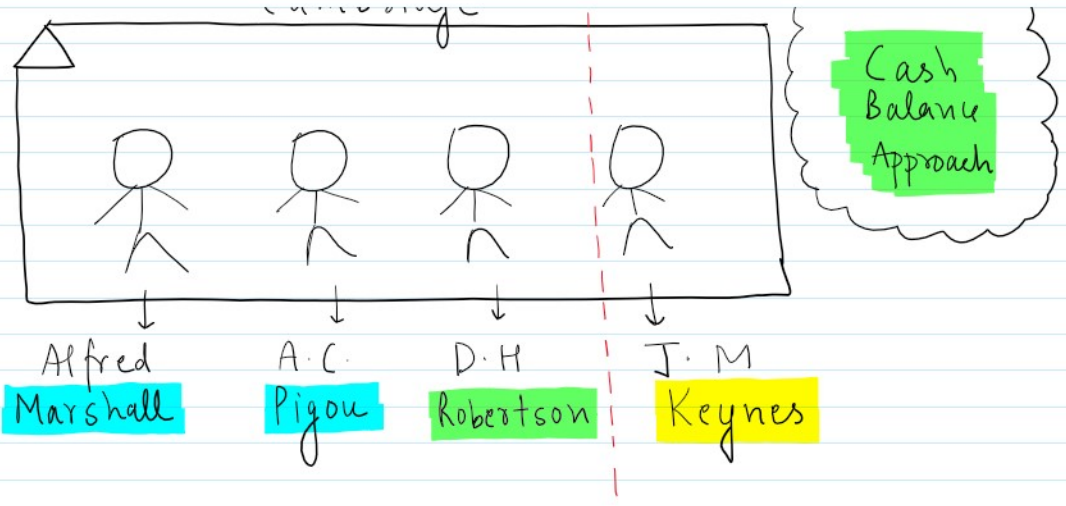 Cambridge
Cash
Balance
Approach
Alfred
Marshall
A.C.
Pigou
D.H
Robertson
J.M
Keynes